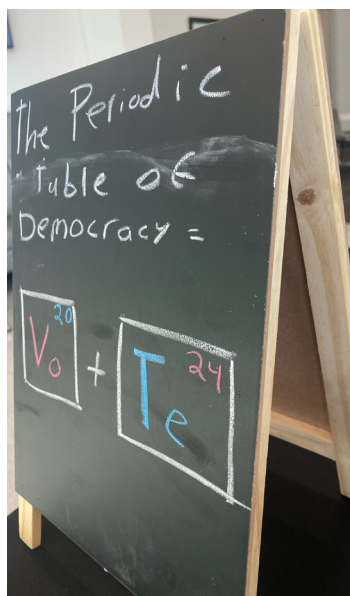 The Periodic
Table of
Democracy =
20 24
Vo + Te